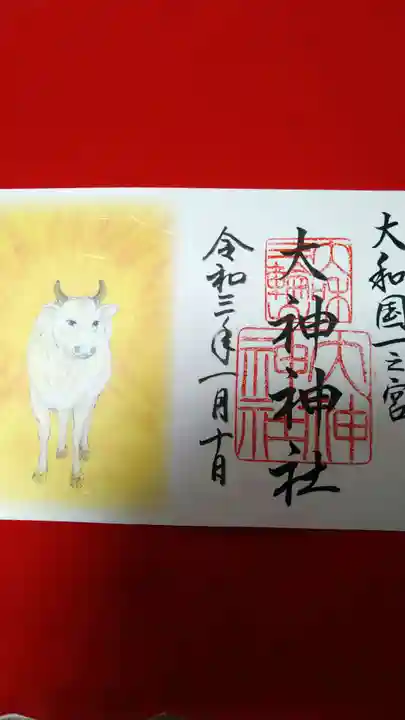 大和国一之宮
大神神社
三輪
大神
神社
令和三年一月十日